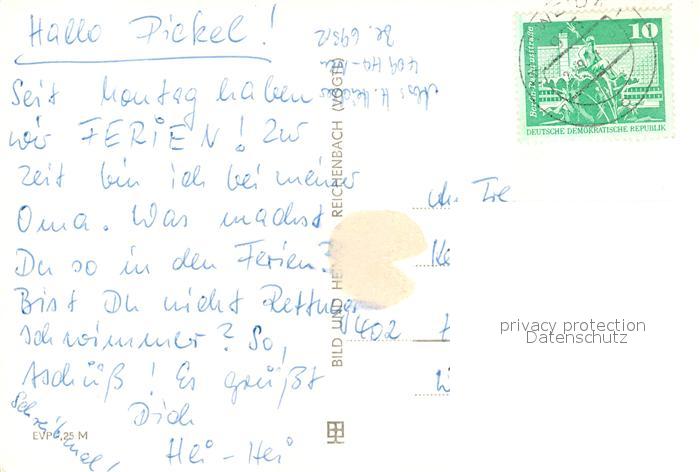 Hallo Pickel!
Seit Montag haben
wir FERIEN! Zur
Zeit bin ich bei meiner
Oma. Was machst
Du so in den Ferien?
Bist Du nicht Rettungs
schwimmer? So,
tschüß! Es grüßt
Dich
Hei-Hei
Schreib mal!
EVP 0,25 M
BILD UND HEIMAT REICHENBACH (VOGTL)
409 Ha-Neu
Bl. 695/2
10
DEUTSCHE DEMOKRATISCHE REPUBLIK
402
privacy protection
Datenschutz